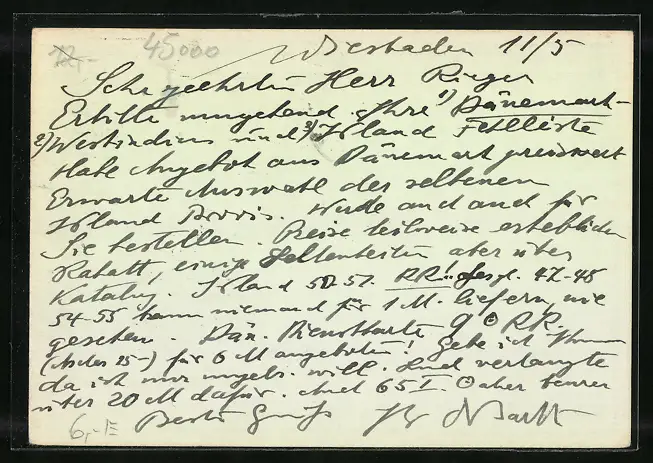 12,-
45000
Wiesbaden 11/5
Sehr geehrter Herr Rieger
Erbitte umgehend Ihre 1) Dänemark-
2) Westindien und 3) Island Fehlliste
Habe Angebot aus Dänemark preiswert
Erwarte Auswahl der seltenen
Island Provis. Würde auch auf für
Sie bestellen. Preise teilweise erheblichen
Rabatt, einige Seltenheiten aber über
Katalog. Island 50-51. RR!! desgl. 47-48
54-55 kann niemand für 1 M. liefern, nie
gesehen. Dän. Dienstkarte 9 RR.
25-) für 6 M angeboten! Gebe ich Ihnen
da ich nur will. Und verlangte
über 20 M dafür. Auch 65 I. aber teurer
Besten Gruß
6,-